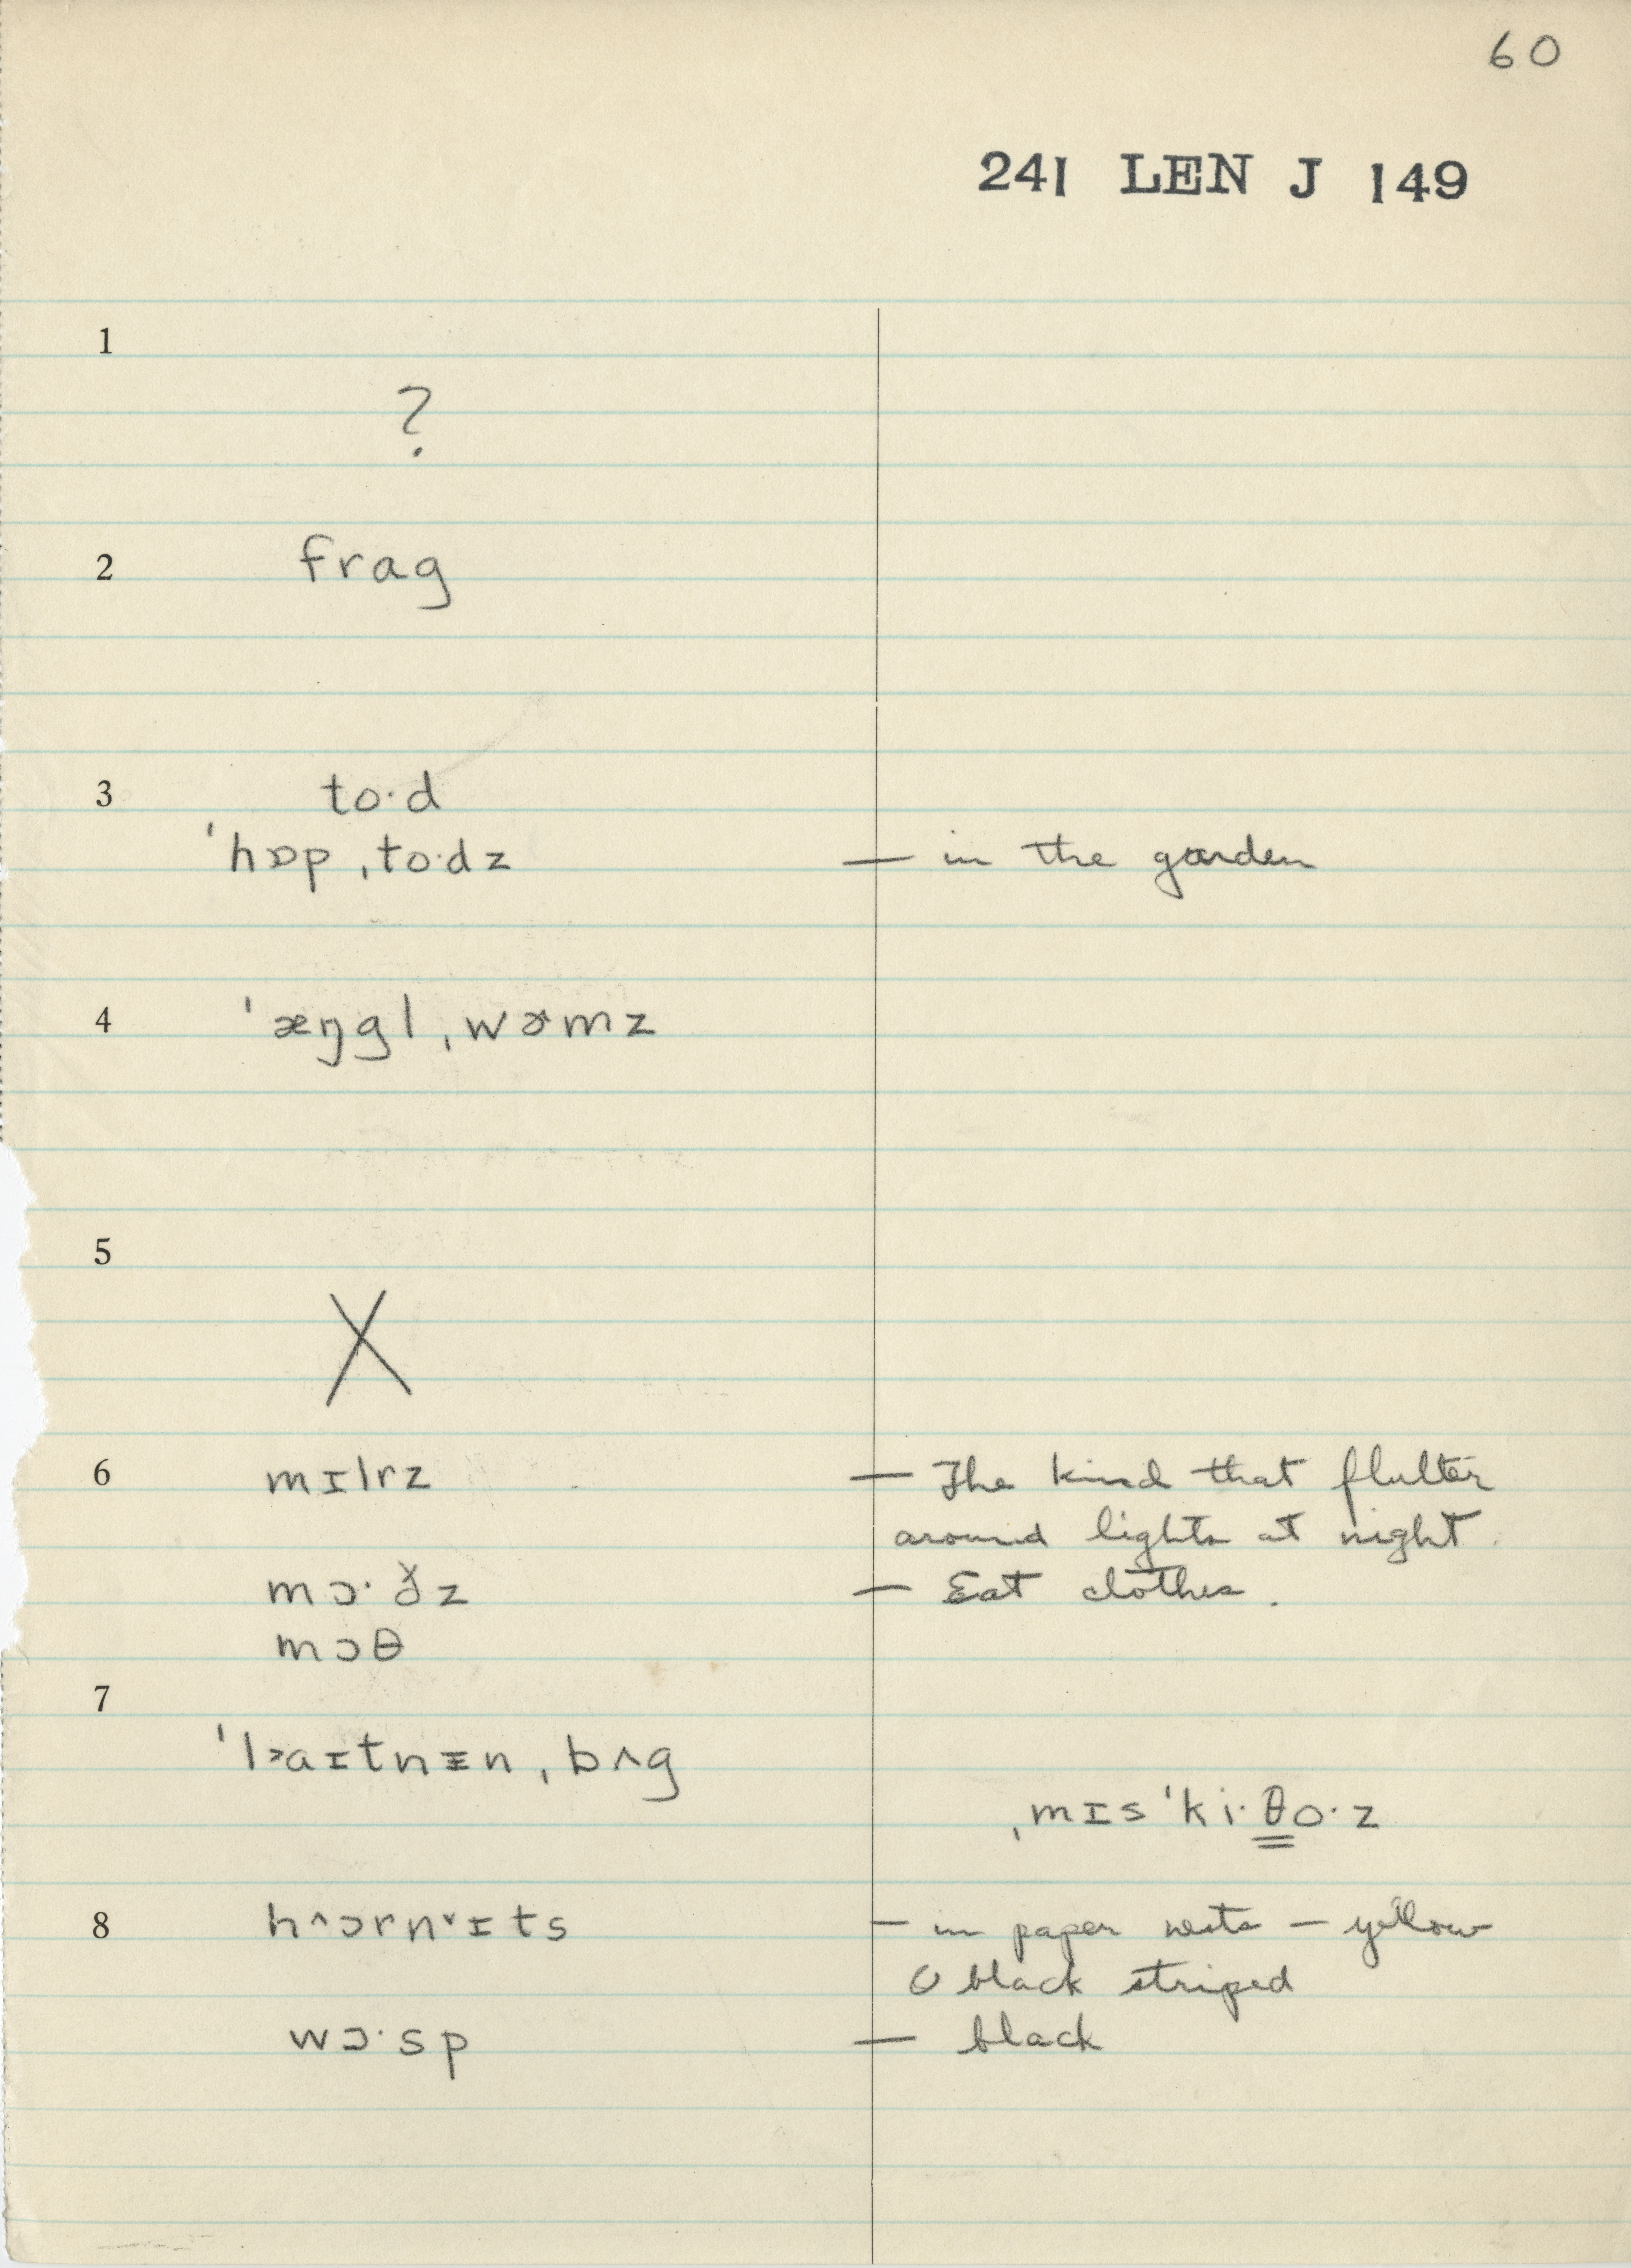 60
241 LEN J 149
1
?
2 frag
3 to·d
ˈhɒp ˌto·dz — in the garden
4 ˈæŋgl ˌwɚmz
5
X
6 mɪlrz — The kind that flutter
around lights at night.
mɔ·ðz — Eat clothes.
mɔθ
7
ˈl˃aɪtnɪn ˌbʌg
ˌmɪs ˈki·θo·z
8 h^ɔrnˇɪts — in paper nests — yellow
black striped
wɔ·sp — black